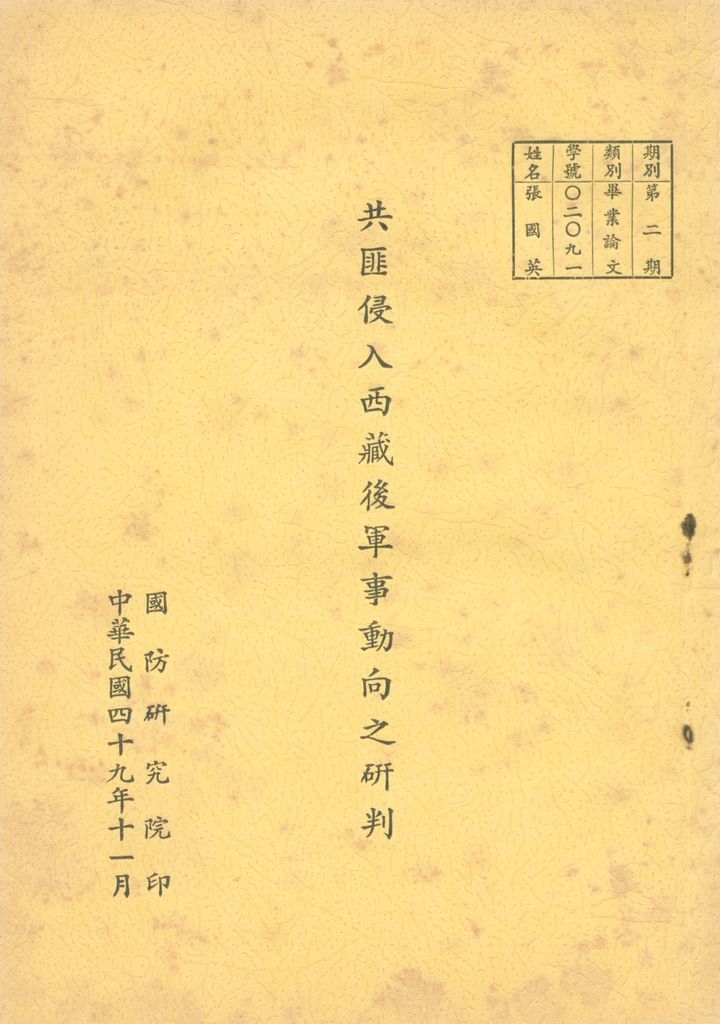 期別 第二期
類別 畢業論文
學號 〇二〇九一
姓名 張國英
共匪侵入西藏後軍事動向之研判
國防研究院印
中華民國四十九年十一月